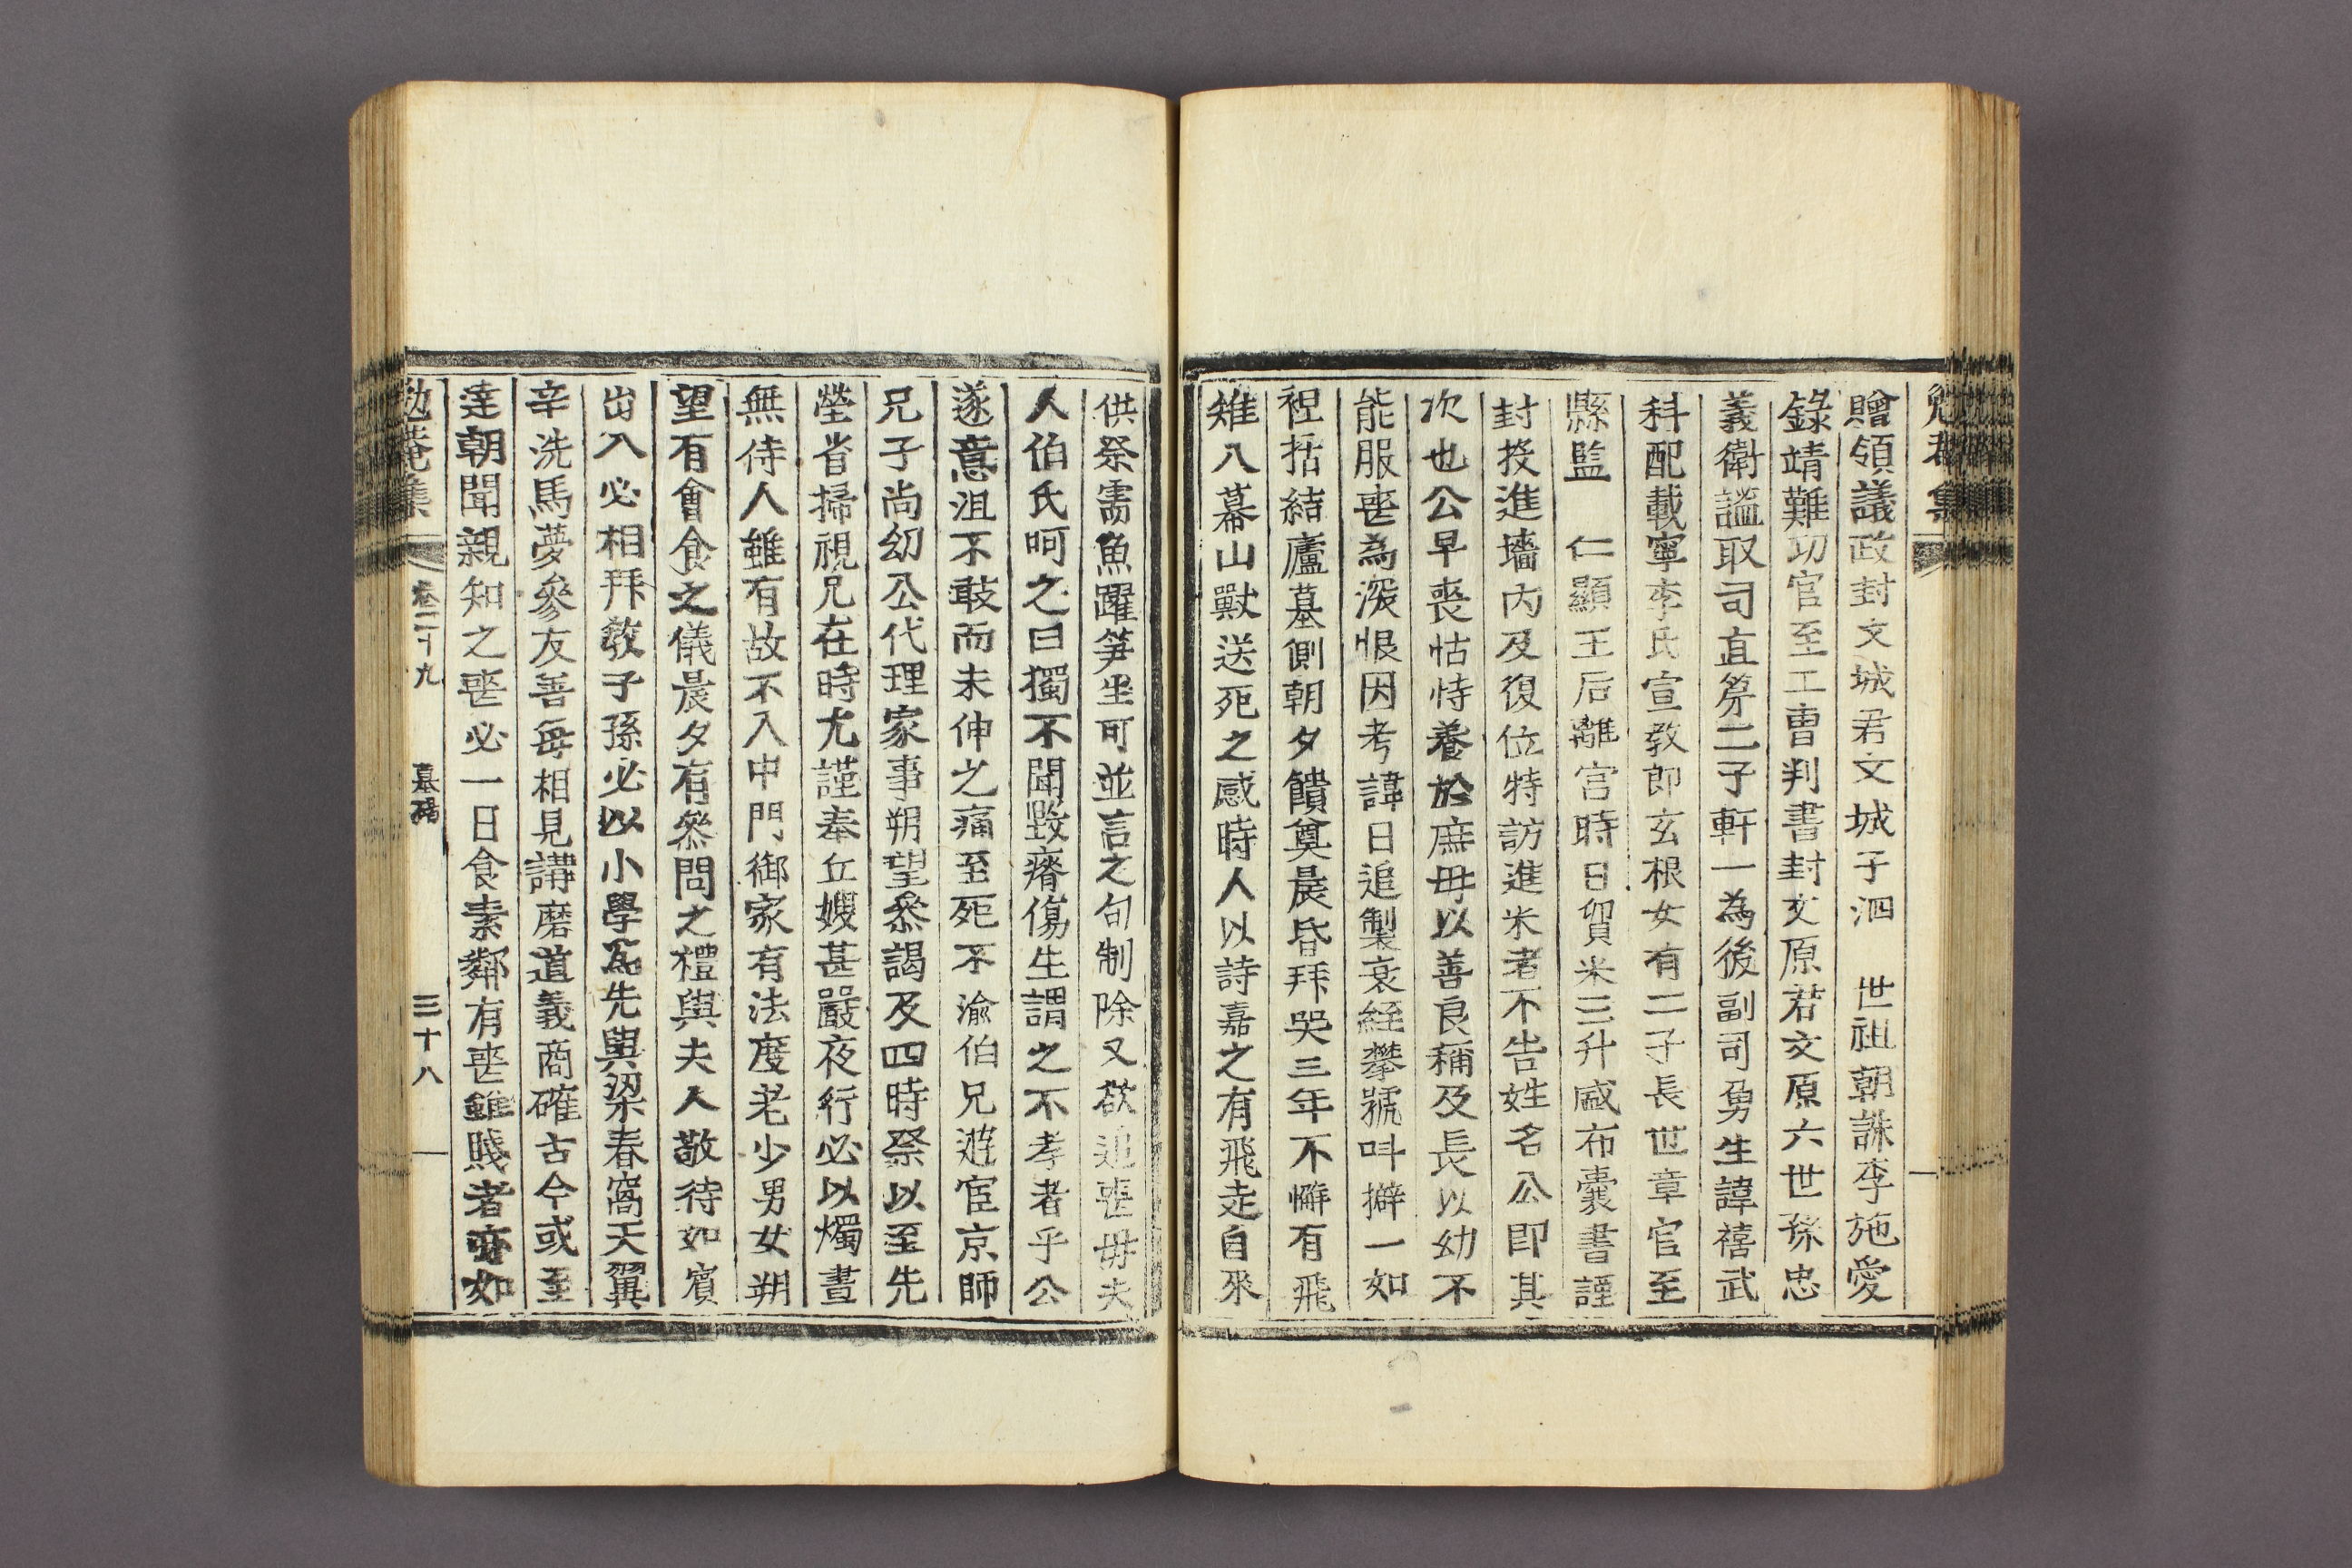 勉菴集
贈領議政封文城君文城子泗 世祖朝誅李施愛
錄靖難功官至工曺判書封文原君文原六世孫忠
義衛諡取司直筭二子軒一為後副司勇生諱禧武
科配載寧李氏宣敎郎玄根女有二子長世章官至
縣監 仁顯王后離宮時日貿米三升盛布囊書謹
封投進墻內及復位特訪進米者不告姓名公卽其
次也公早喪怙恃養於庶母以善良稱及長以幼不
能服喪為深恨因考諱日追製衰絰攀號叫擗一如
袒括結廬墓側朝夕饋奠晨昏拜哭三年不懈有飛
雉入幕山獸送死之感時人以詩嘉之有飛走自來
供祭需魚躍笋生可並言之句制除又欲追喪毋夫
人伯氏呵之曰獨不聞毀瘠傷生謂之不孝者乎公
遂意沮不敢而未伸之痛至死不渝伯兄遊宦京師
兄子尚幼公代理家事朔望叅謁及四時祭以至先
塋省掃視兄在時尤謹奉丘嫂甚嚴夜行必以燭晝
無侍人雖有故不入中門御家有法度老少男女朔
望有會食之儀晨夕有叅問之禮與夫人敬待如賓
出入必相拜敎子孫必以小學爲先與梁春窩天翼
辛洗馬夢參友善每相見講磨道義商確古今或至
達朝聞親知之喪必一日食素鄰有喪雖賤者亦如
勉菴集 卷二十九 墓碣 三十八